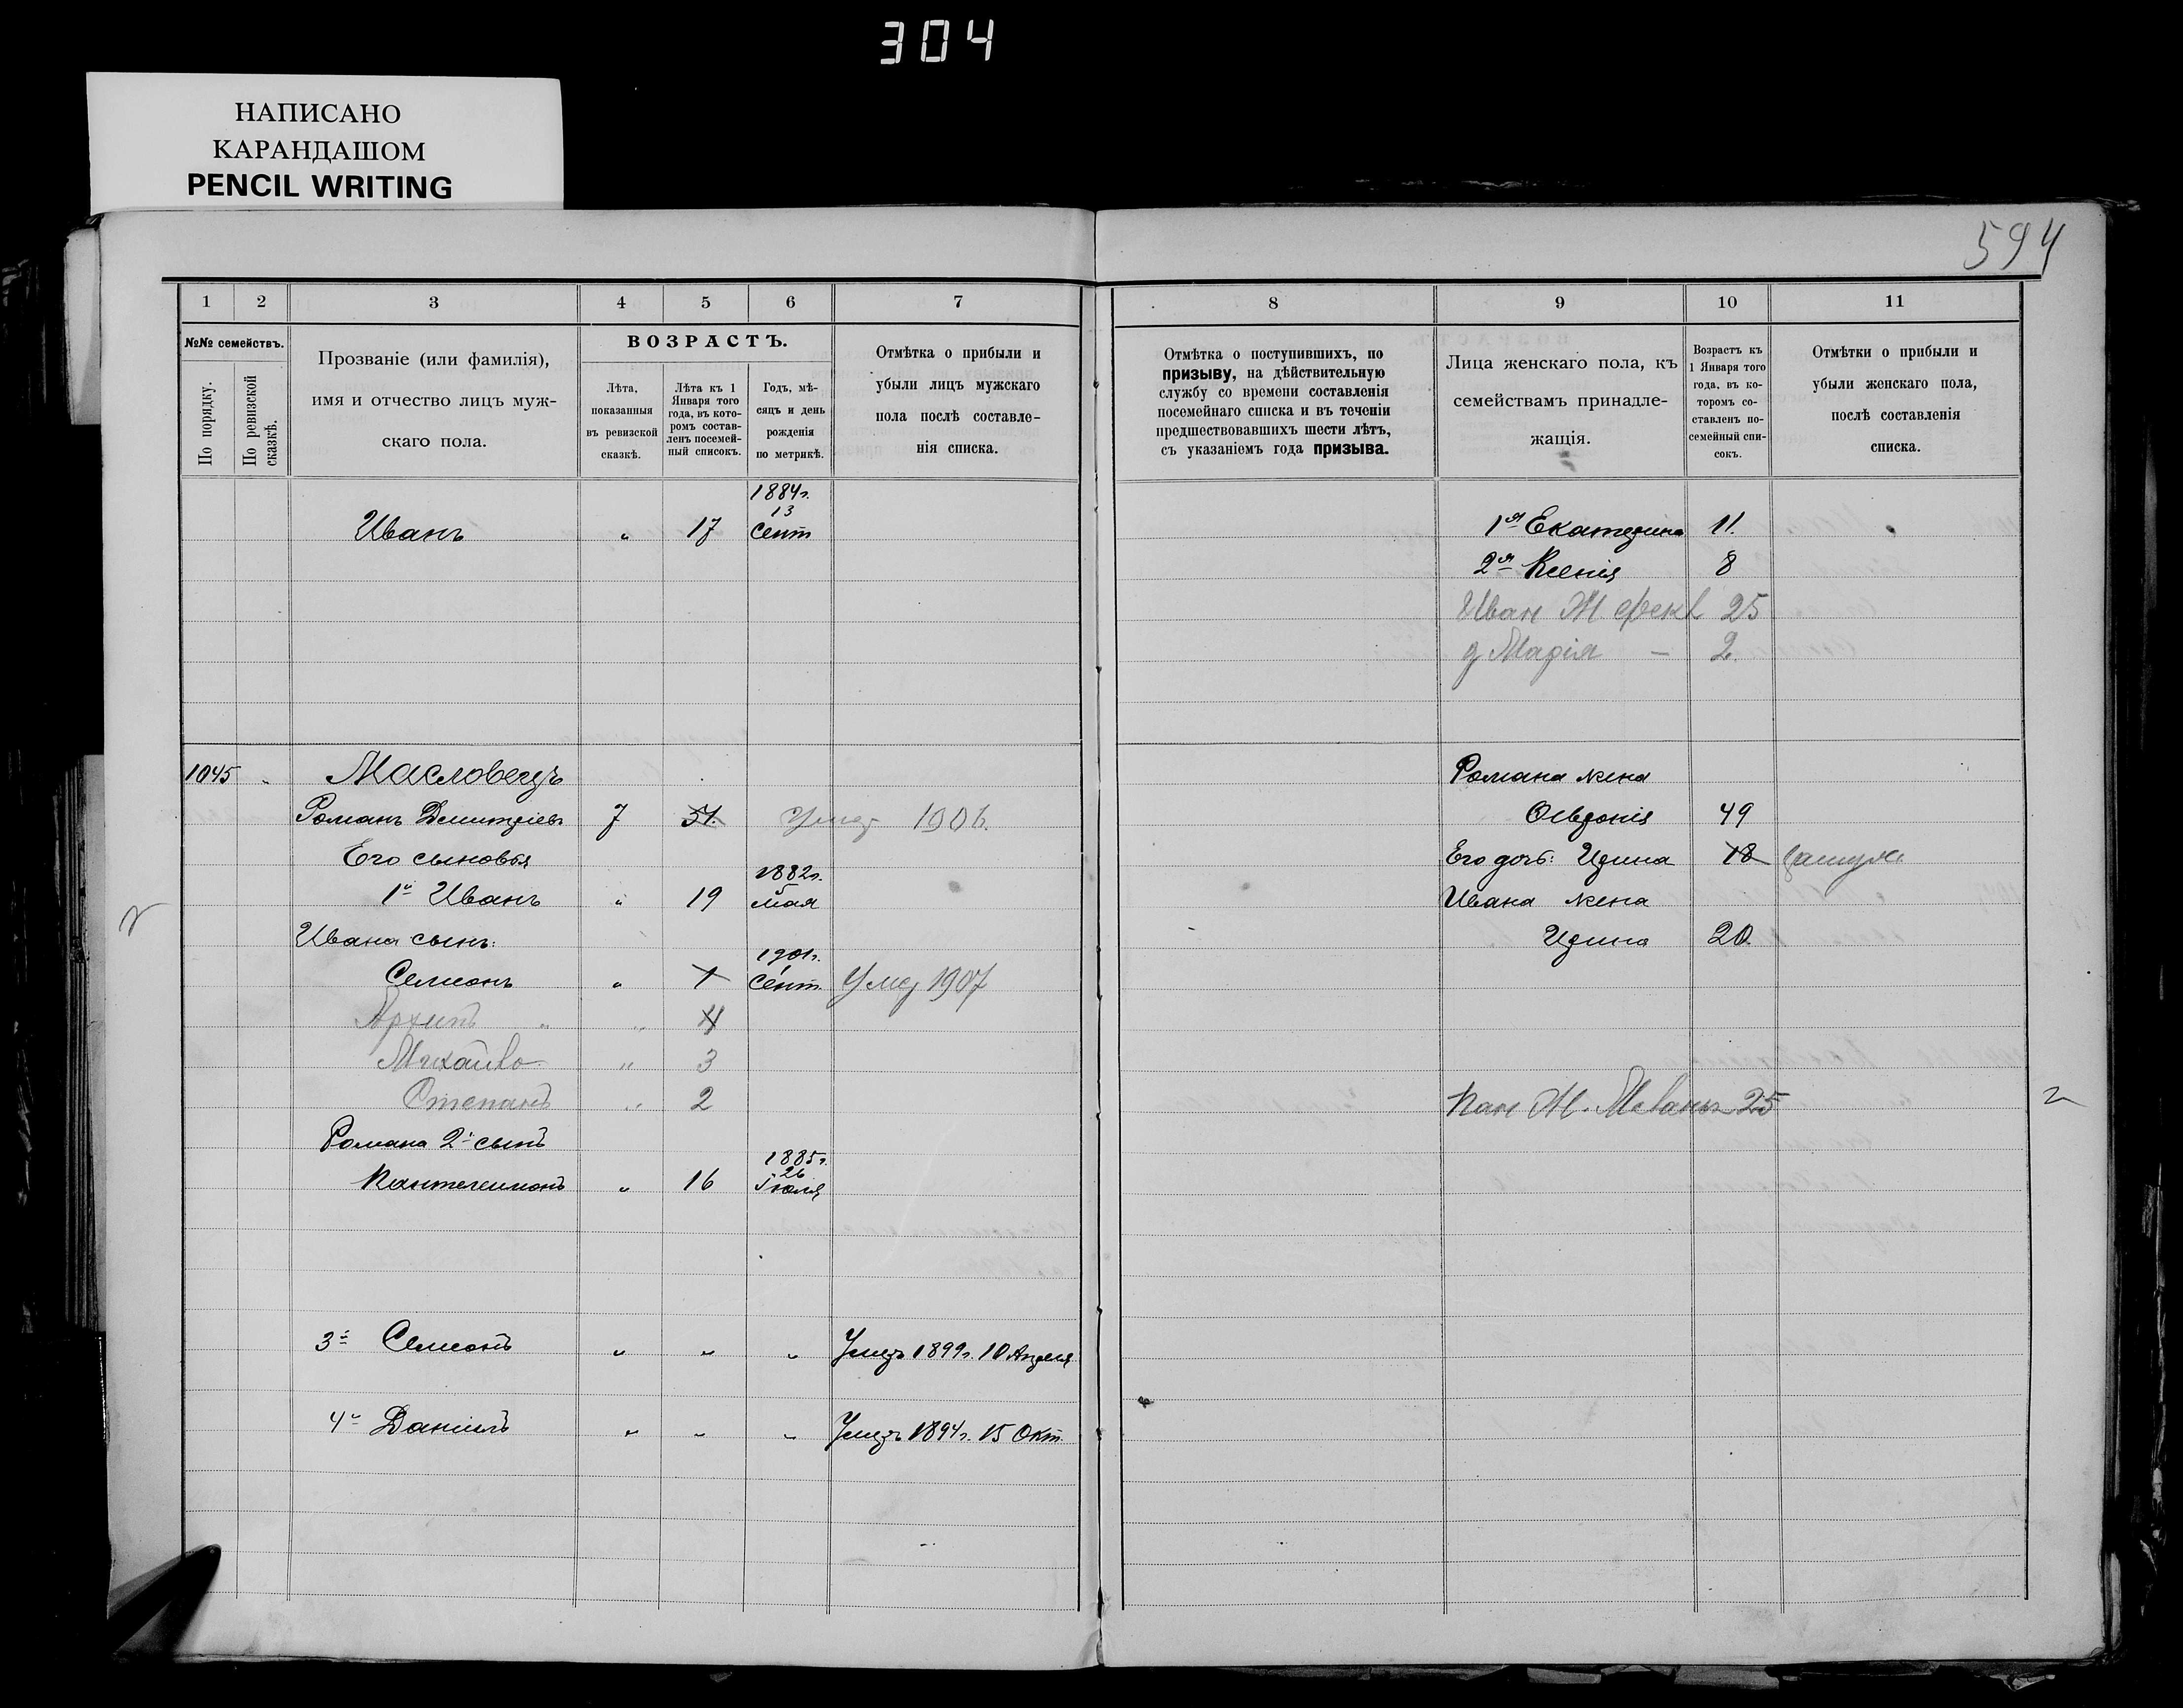 304
НАПИСАНО
КАРАНДАШОМ
PENCIL WRITING
594
1 2 3 4 5 6 7
8 9 10 11
№№ семействъ.
По порядку.
По ревизской сказкѣ.
Прозваніе (или фамилія),
имя и отчество лицъ муж-
скаго пола.
ВОЗРАСТЪ.
Лѣта,
показанныя
въ ревизской
сказкѣ.
Лѣта къ 1
Января того
года, въ кото-
ромъ состав-
ленъ посемей-
ный списокъ.
Годъ, мѣ-
сяцъ и день
рожденія
по метрикѣ.
Отмѣтка о прибыли и
убыли лицъ мужскаго
пола послѣ составле-
нія списка.
Отмѣтка о поступившихъ, по
призыву, на дѣйствительную
службу со времени составленія
посемейнаго списка и въ теченіи
предшествовавшихъ шести лѣтъ,
съ указаніемъ года призыва.
Лица женскаго пола, къ
семействамъ принадле-
жащія.
Возрастъ къ
1 Января того
года, въ ко-
торомъ со-
ставленъ по-
семейный спи-
сокъ.
Отмѣтки о прибыли и
убыли женскаго пола,
послѣ составленія
списка.
1884г.
13
Иванъ " 17 Сент
1я Екатерина 11.
2я Ксенія 8
Иван Ж. Фекл 25
д Марія — 2.
1045 Масловецъ
Романъ Дмитріевъ 7 51. Умер 1906.
Его сыновья
1882г.
5
1й Иванъ " 19 мая
Ивана сынъ:
1901г.
1
Семионъ " 1 Сент. Умер 1907
Архипъ " " 4
Михайло " 3
Степанъ " 2
Романа 2й сынъ
1885г.
26
Пантелеимонъ " 16 Іюля
3й Семионъ " " " Умеръ 1899г. 10 Апреля
4й Даніилъ " " " Умеръ 1894г. 15 Окт.
Романа жена
Овдокія 49
Его дочь: Ирина 18 замуж
Ивана жена
Ирина 20.
Пан Ж. 25